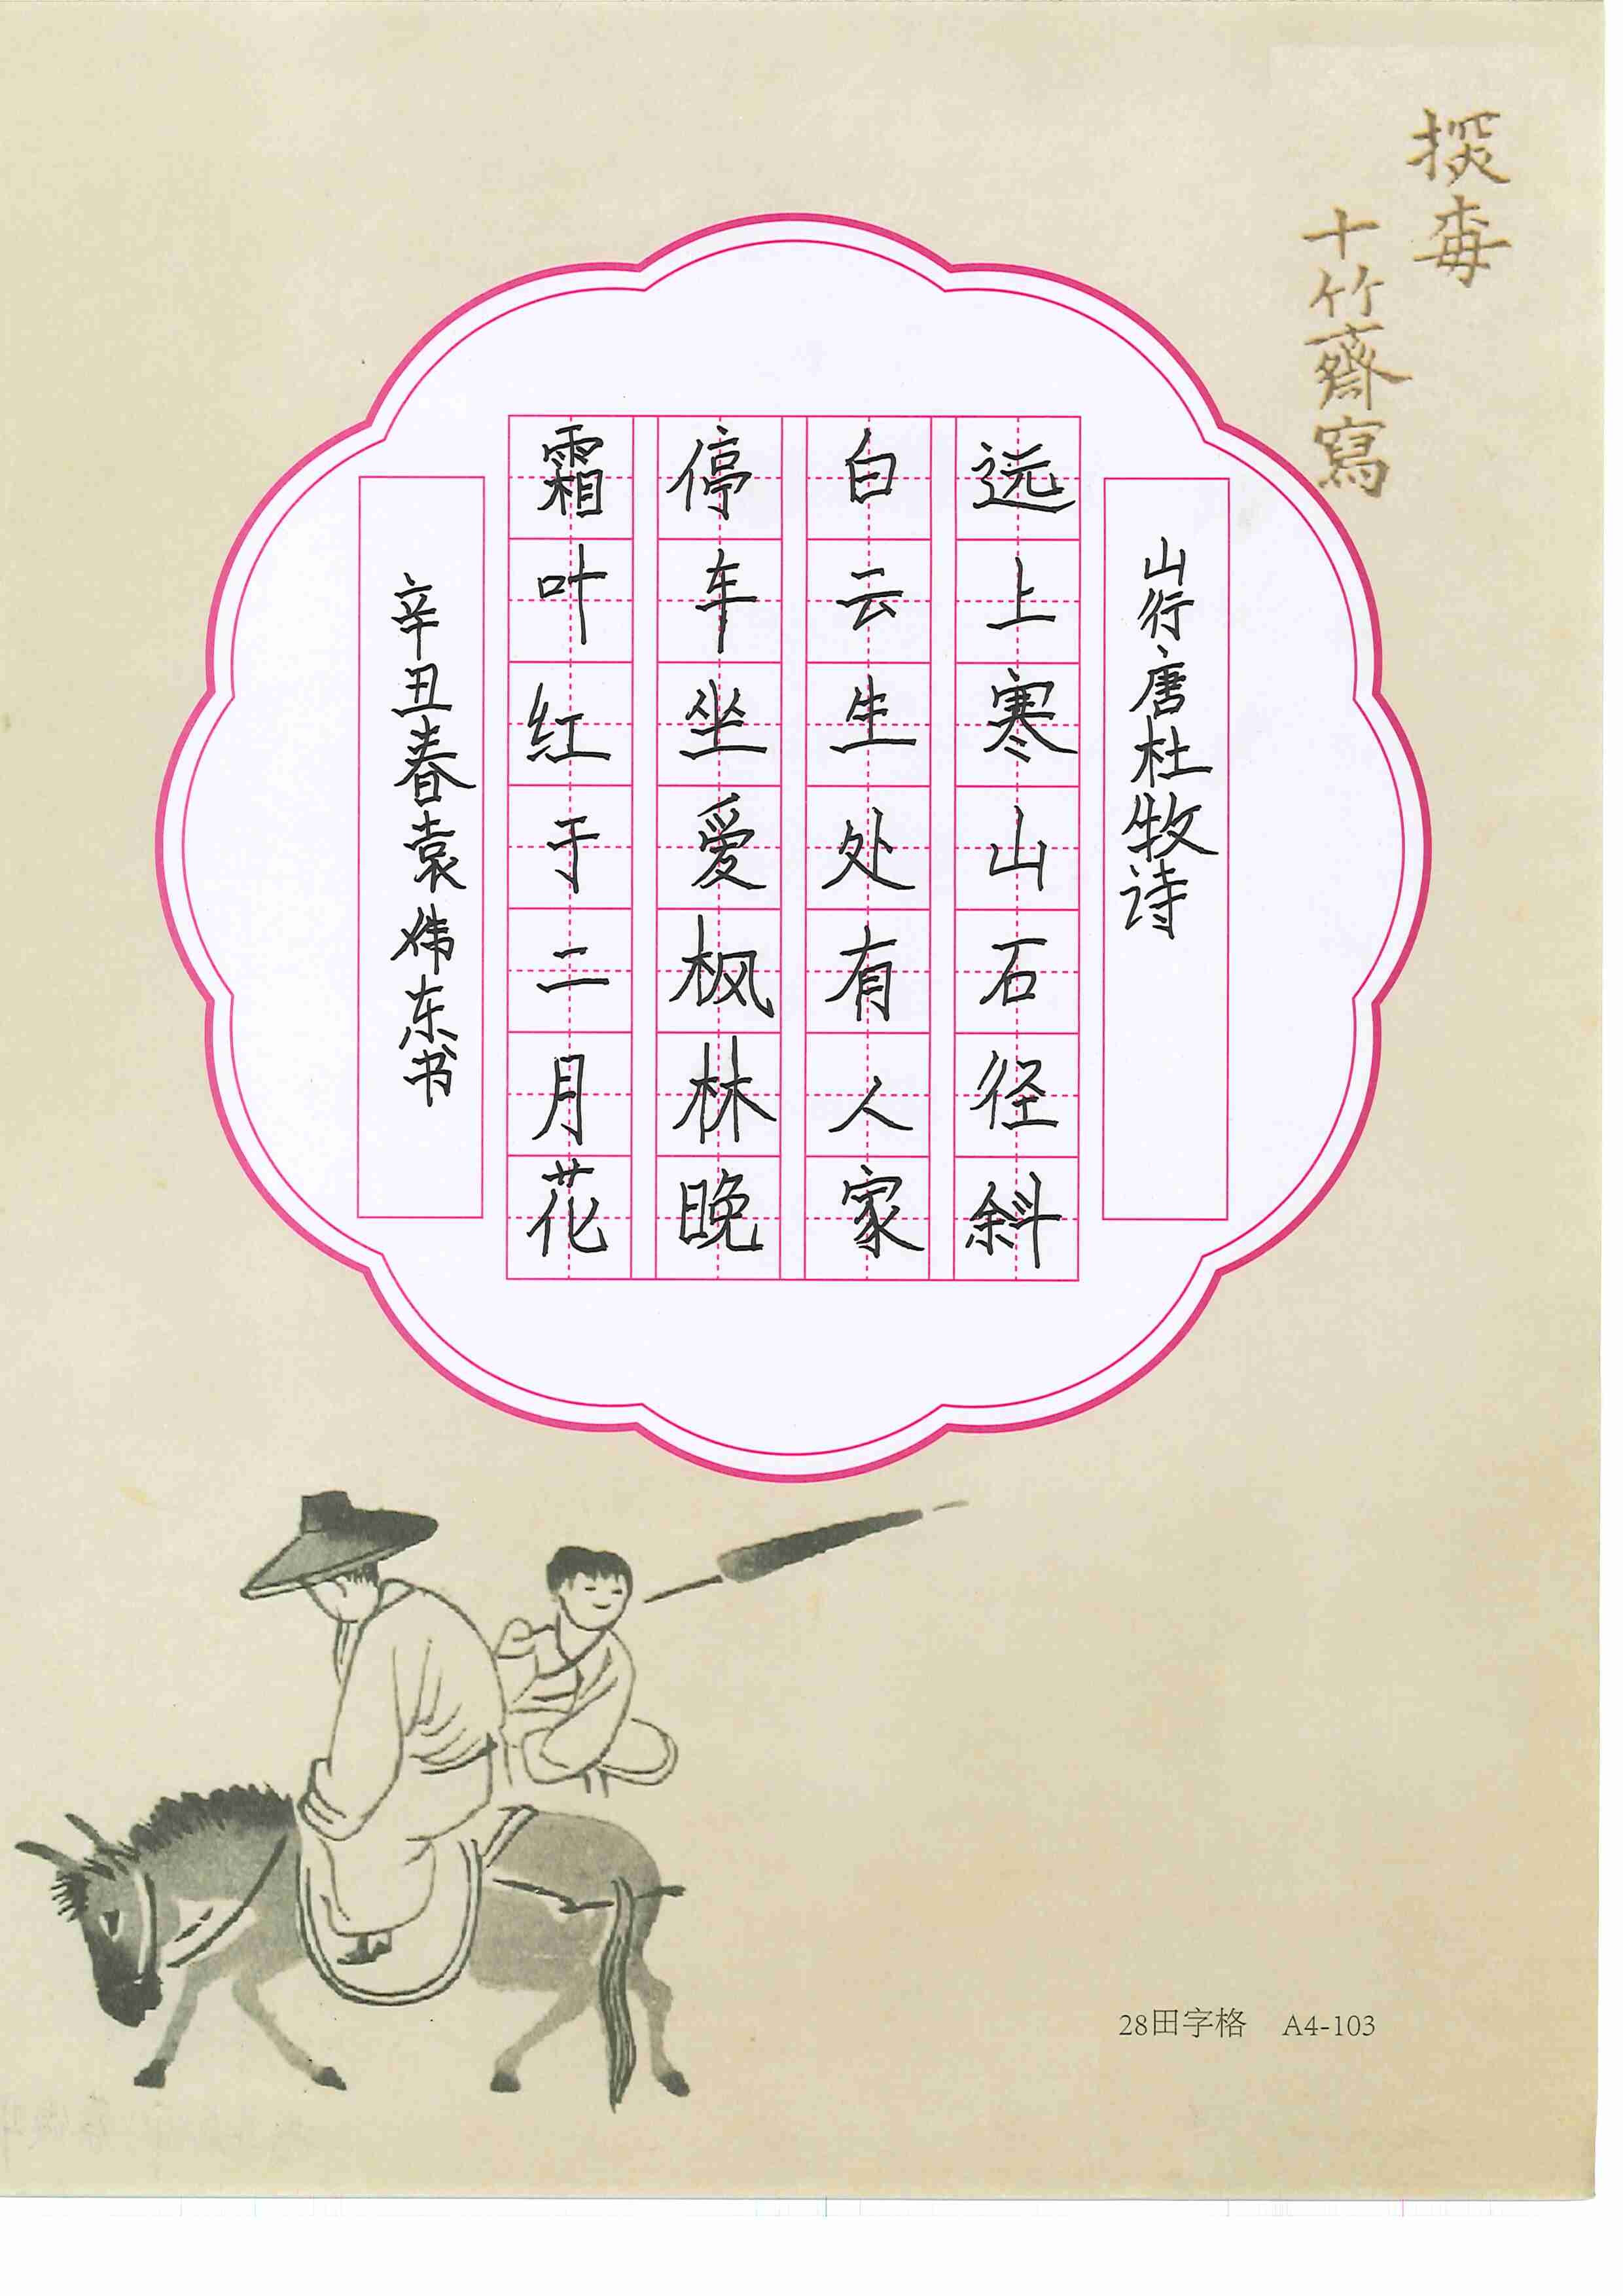 探梅
十竹齋寫
山行·唐杜牧诗
远上寒山石径斜
白云生处有人家
停车坐爱枫林晚
霜叶红于二月花
辛丑春袁东书
28田字格 A4-103